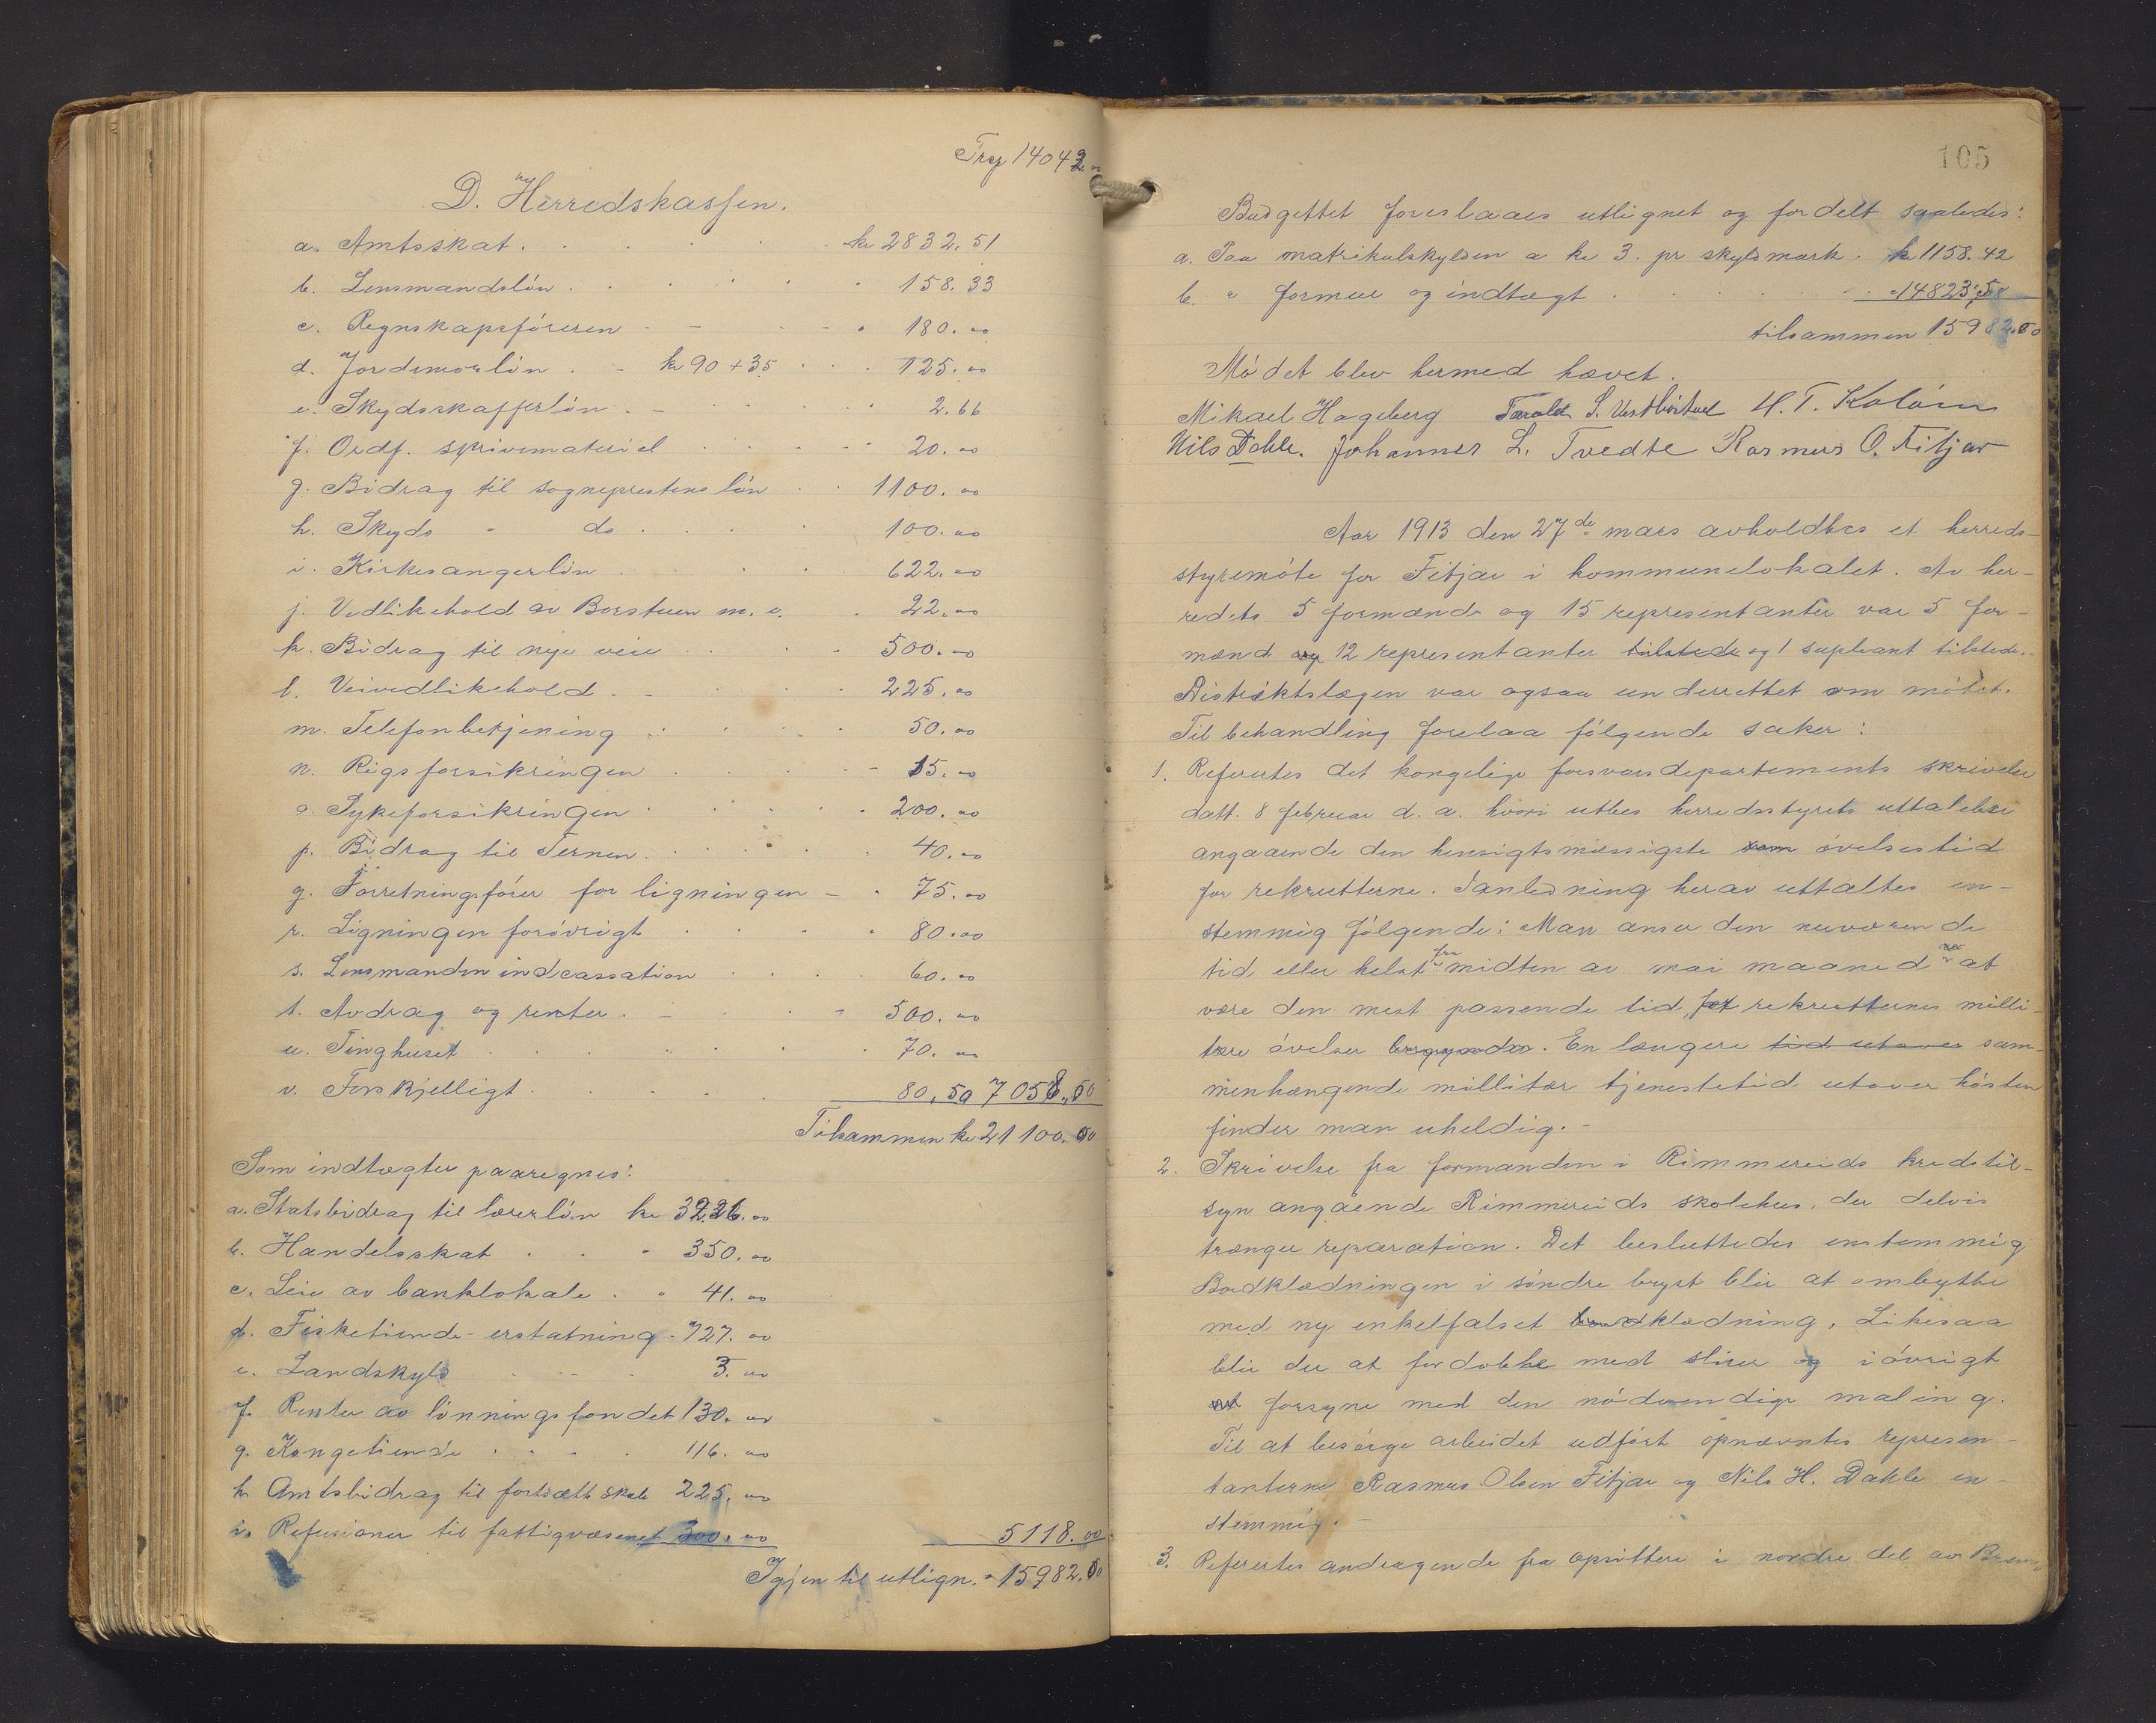 Trsp 14042.00
D. Herredskassen.
a. Amtsskat . . . . . kr 2832.51
b. Lensmandsløn . . . . . " 158.33
c. Regnskapsføreren - - - - " 180.00
d. Jordemorløn . - kr 90 + 35 . . . 125.00
e. Skydsskafferløn . - . . . . 2.66
f. Ordf. skrivemateriel . . . . " 20.00
g. Bidrag til sogneprestens løn . . 1100.00
h. Skyds " do . . . . 100.00
i. Kirkesangerløn . . . . . 622.00
j. Vedlikehold av Borstuen m. v. . 22.00
k. Bidrag til nye veie . . . . 500.00
l. Veivedlikehold . - . . . . 225.00
m. Telefonbetjening . . . . . 50.00
n. Rigsforsikringen . . . . - 15.00
o. Sykeforsikringen . . . . . 200.00
p. Bidrag til Ternen . . . . . 40.00
q. Forretningsfører for ligningen - " 75.00
r. Ligningen forøvrigt . . . . " 80.00
s. Lensmanden indcassation . . . . 60.00
t. Avdrag og renter . - . . . " 500.00
u. Tinghuset . . . . . . 70.00
v. Forskjelligt . . . . . 80,50 7058,00
Tilsammen kr 21100.00
Som indtægter paaregnes:
a. Statsbidrag til lærerløn kr 3226.00
b. Handelsskat . . . " 350.00
c. Leie av banklokale . " 41.00
d. Fisketiende-erstatning " 727.00
e. Landskyld . . . 3.00
f. Renter av lønningsfondet 130.00
g. Kongetiende . . . . 116.00
h Amtsbidrag til fortsætt skole 225.00
i. Refusioner til fattigvæsenet 300.00 5118.00
Igjen til utlign. " 15982.00
105
Budgettet foreslaaes utlignet og fordelt saaledes:
a. Paa matrikulskylden a kr 3. pr skyldmark . kr 1158.42
b. " formue og indtægt . . . . " 14823,58
tilsammen 15982.00
Mødet blev hermed hævet.
Mikael Hageberg S. Vestbøstad H. T. Koløen
Nils Dahle. Johannes L. Tvedte Rasmus O. Fitjar
Aar 1913 den 27de mars avholdtes et herreds-
styremøte for Fitjar i kommunelokalet. Av her-
redets 5 formænd og 15 representanter var 5 for-
mænd og 12 representanter tilstede og 1 supleant tilstede.
Distriktslægen var ogsaa underrettet om møtet.
Til behandling forelaa følgende saker:
1. Refertes det kongelige forsvarsdepartements skrivelse
datt. 8 februar d. a. hvori utbes herredsstyrets uttalelse
angaaende den hensigtsmæssigste som øvelsestid
for rekrutterne. I anledning herav uttaltes en-
stemmig følgende: Man anser den nuværende
tid eller helst fra midten av mai maaned at
være den mest passende tid, for rekrutternes milli-
tære øvelser begynder. En længere tid utover sam-
menhængende millitær tjenestetid utover høsten
finder man uheldig. -
2. Skrivelse fra formanden i Rimmereids kredstil-
syn angående Rimmereids skolehus, der delvis
trænger reparation. Det besluttedes enstemmig
Bordklædningen i søndre bryst blir at ombytte
med ny enkelfalset bordklædning. Likesaa
blir der at fordobble med slirer og iøvrigt
at forsyne med den nødvendige maling.
Til at besørge arbeidet udført opnævntes represen-
tanterne Rasmus Olsen Fitjar og Nils H. Dahle en-
stemmig. -
3. Refertes andragende fra opsittere i nordre del av